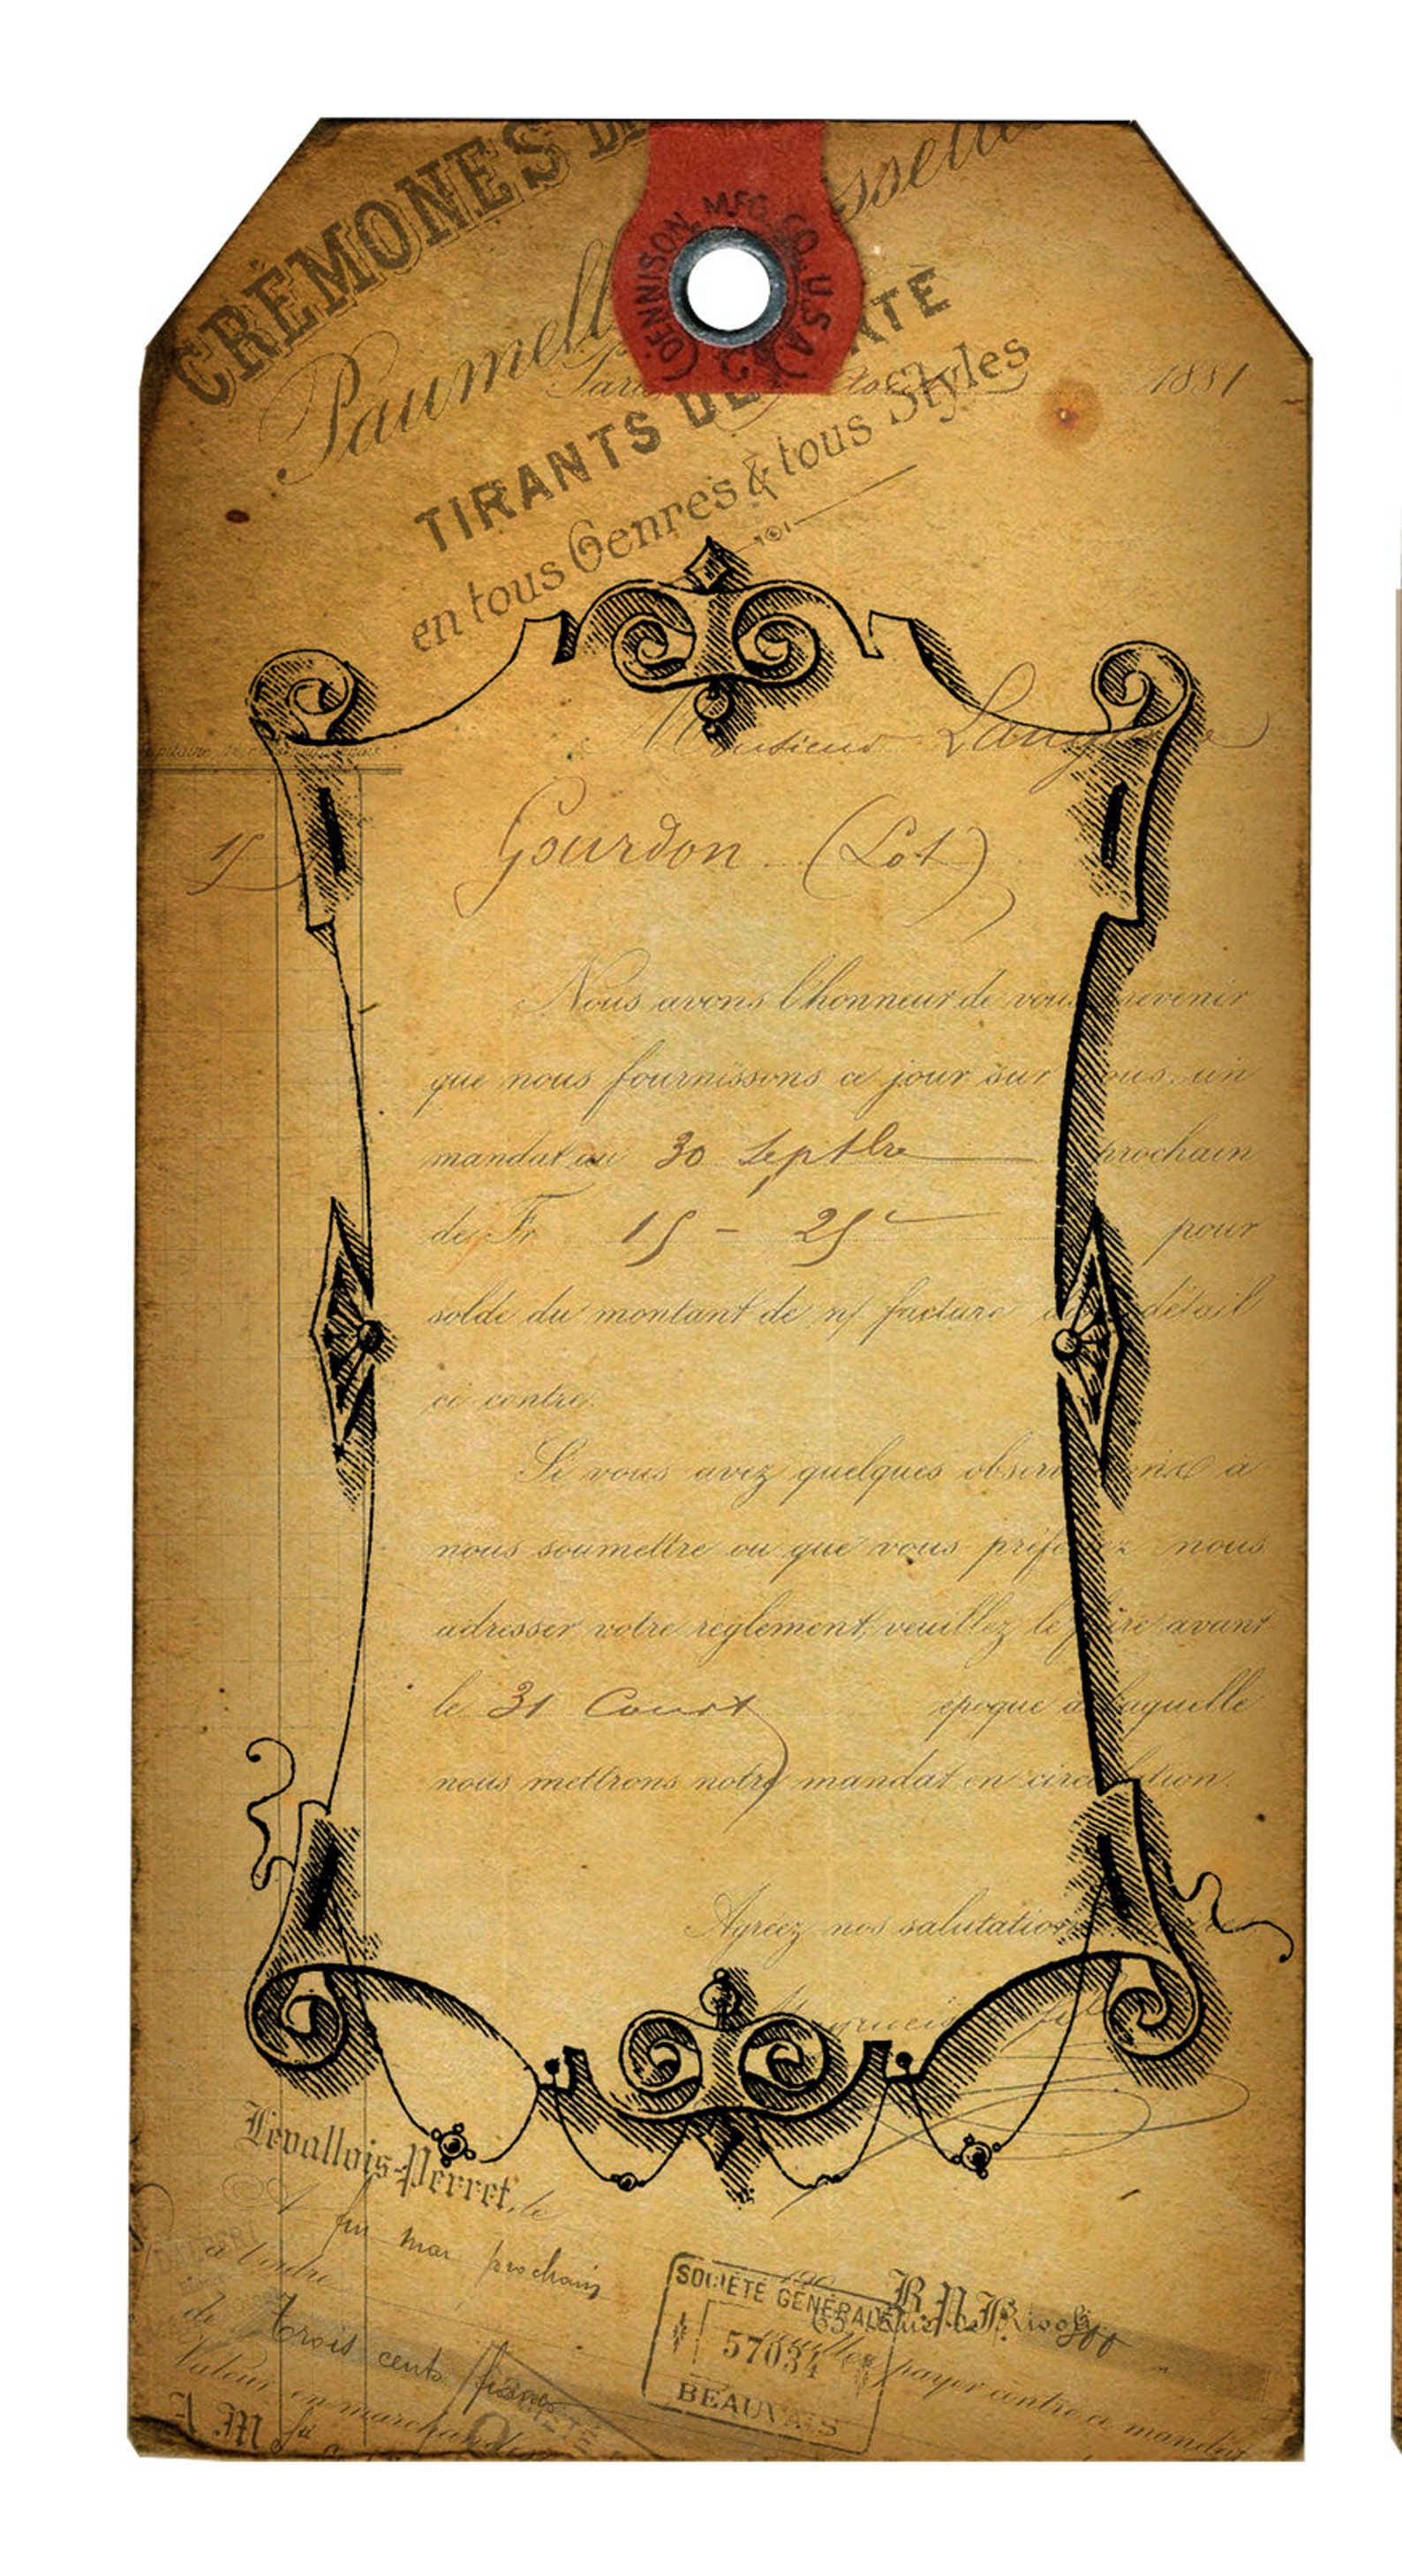 CRÉMONES
DENNISON MFG. CO. U.S.A.
Paumell
TIRANTS DE
en tous Genres & tous Styles
1881
Monsieur
Gourdon (Lot)
15
Nous avons l'honneur de vous prevenir
que nous fournissons ce jour sur vous un
mandat au 30 Septbre prochain
de Fr 15 - 25c pour
solde du montant de n/ facture détail
ci contre.
Si vous avez quelques observ à
nous soumettre ou que vous préférez nous
adresser votre reglement, veuillez le faire avant
le 31 Court époque à laquelle
nous mettrons notre mandat en circulation.
Agréez nos salutations
Levallois-Perret, le
fin mai prochain
à l'ordre
de trois cents francs
Valeur en marchandises
A M
SOCIÉTÉ GÉNÉRALE
57034
BEAUVAIS
payer contre ce mandat